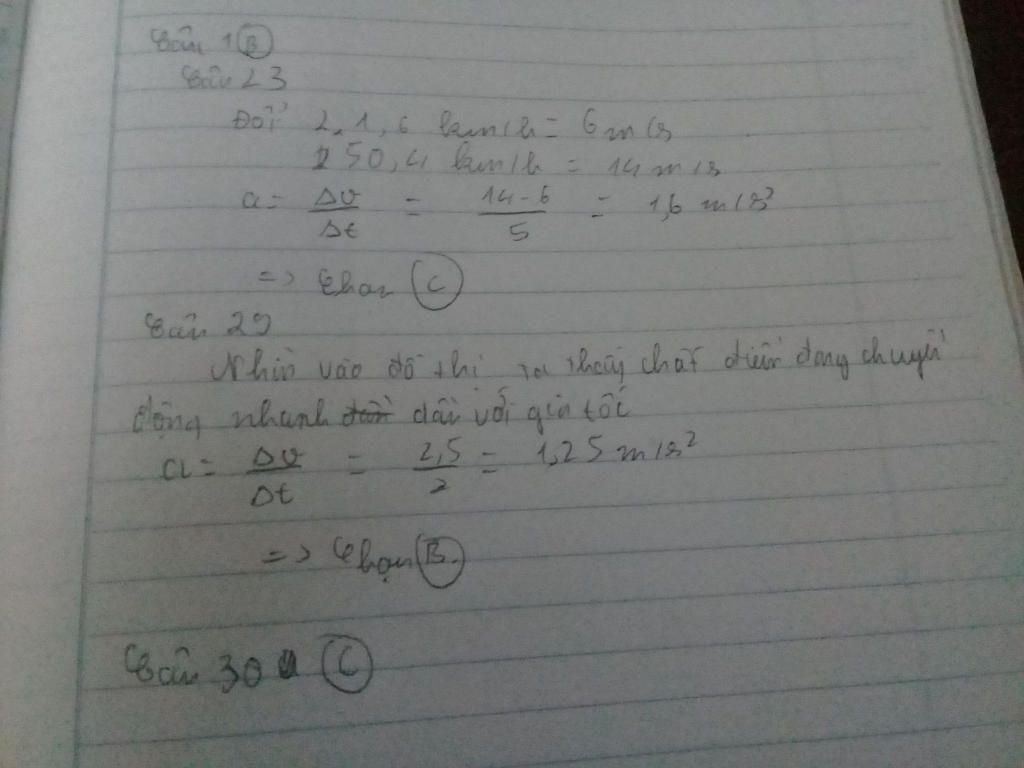 Câu 1 B
Câu 23
Đổi 2.1,6 km/h = 6 m/s
50,4 km/h = 14 m/s
a = Δv/Δt = 14-6/5 = 1,6 m/s²
=> Chọn C
Câu 29
Nhìn vào đồ thị ta thấy chất điểm đang chuyển
động nhanh dần với gia tốc
a = Δv/Δt = 2,5/2 = 1,25 m/s²
=> Chọn B.
Câu 30 C